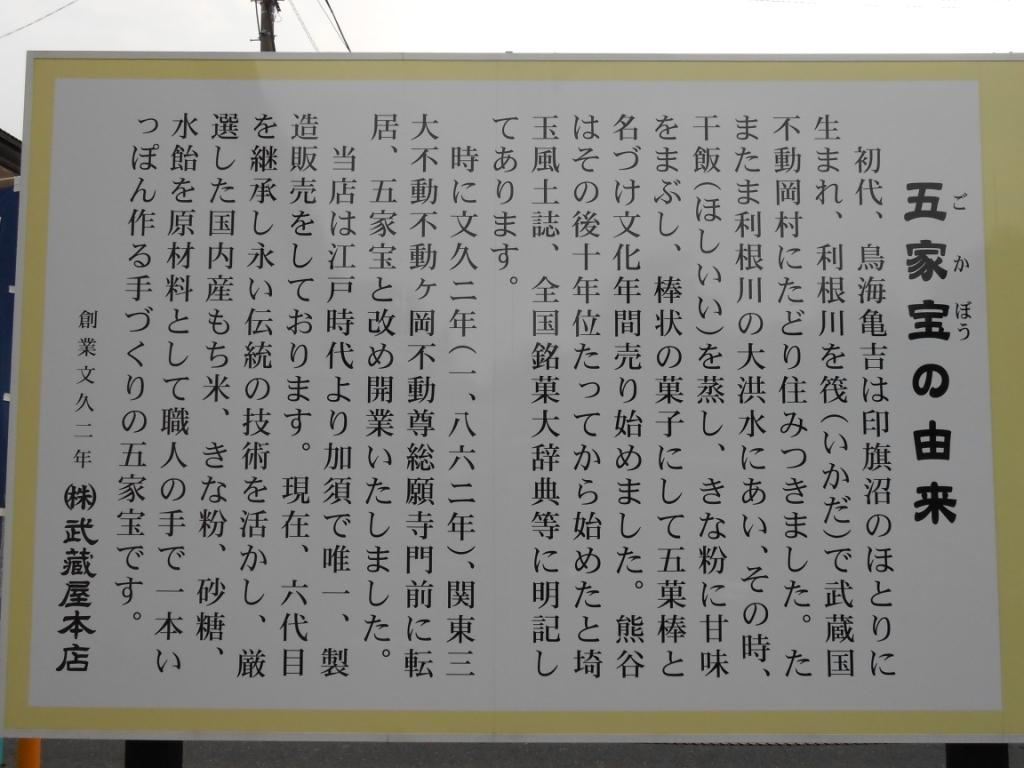 五家宝の由来
ごかぼう
初代、鳥海亀吉は印旗沼のほとりに
生まれ、利根川を筏(いかだ)で武蔵国
不動岡村にたどり住みつきました。た
またま利根川の大洪水にあい、その時、
干飯(ほしいい)を蒸し、きな粉に甘味
をまぶし、棒状の菓子にして五菓棒と
名づけ文化年間売り始めました。熊谷
はその後十年位たってから始めたと埼
玉風土誌、全国銘菓大辞典等に明記し
てあります。
時に文久二年(一、八六二年)、関東三
大不動不動ヶ岡不動尊総願寺門前に転
居、五家宝と改め開業いたしました。
当店は江戸時代より加須で唯一、製
造販売をしております。現在、六代目
を継承し永い伝統の技術を活かし、厳
選した国内産もち米、きな粉、砂糖、
水飴を原材料として職人の手で一本い
っぽん作る手づくりの五家宝です。
創業文久二年 ㈱武蔵屋本店